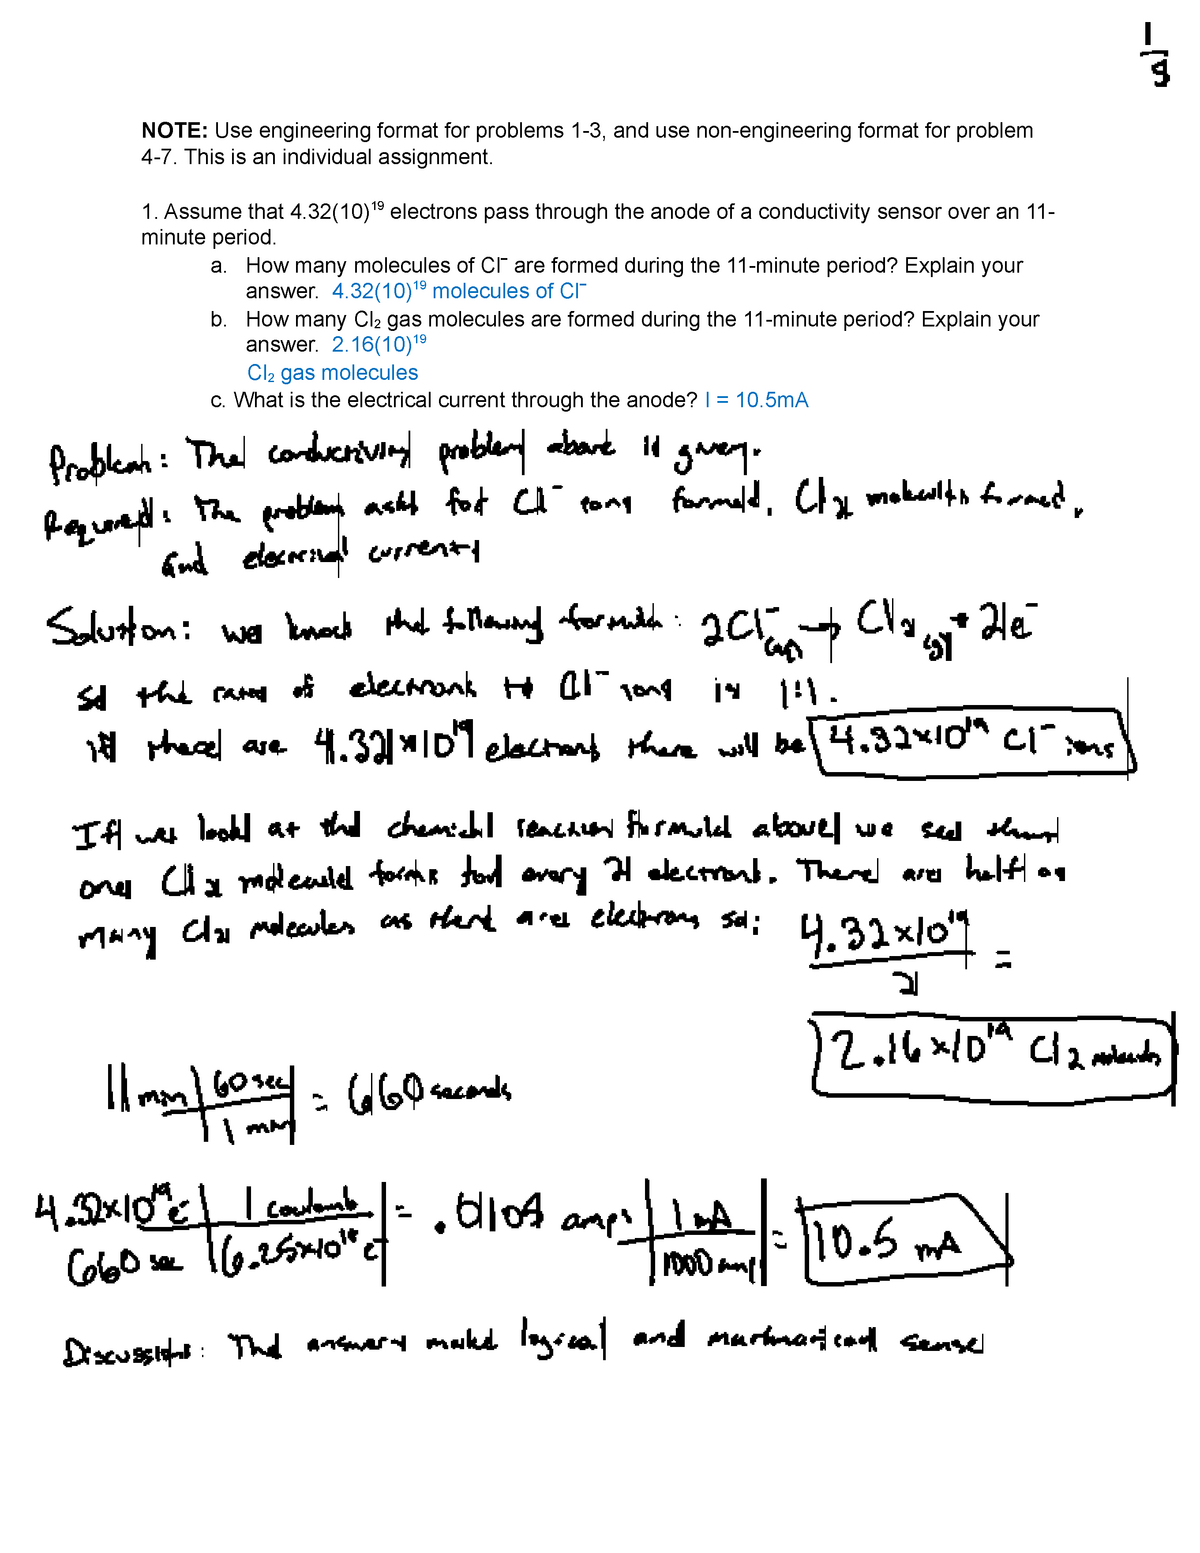 1
9
NOTE: Use engineering format for problems 1-3, and use non-engineering format for problem
4-7. This is an individual assignment.
1. Assume that 4.32(10)¹⁹ electrons pass through the anode of a conductivity sensor over an 11-
minute period.
a. How many molecules of Cl⁻ are formed during the 11-minute period? Explain your
answer. 4.32(10)¹⁹ molecules of Cl⁻
b. How many Cl₂ gas molecules are formed during the 11-minute period? Explain your
answer. 2.16(10)¹⁹
Cl₂ gas molecules
c. What is the electrical current through the anode? I = 10.5mA
Problem: The conductivity problem above is given.
Required: The problem asks for Cl⁻ ions formed, Cl₂ molecules formed,
and electrical current
Solution: we know the following formula: 2Cl⁻(aq) → Cl₂(g) + 2e⁻
So the ratio of electrons to Cl⁻ ions is 1:1.
if there are 4.32×10¹⁹ electrons there will be 4.32×10¹⁹ Cl⁻ ions
If we look at the chemical reaction formula above we see that
one Cl₂ molecule forms for every 2 electrons. There are half as
many Cl₂ molecules as there are electrons so: 4.32×10¹⁹ / 2 =
2.16×10¹⁹ Cl₂ molecules
11 min | 60 sec / 1 min = 660 seconds
4.32×10¹⁹ e⁻ / 660 sec | 1 coulomb / 6.25×10¹⁸ e⁻ = .0105 amps | 1 mA / 1000 amp = 10.5 mA
Discussion: The answers make logical and mathmatical sense